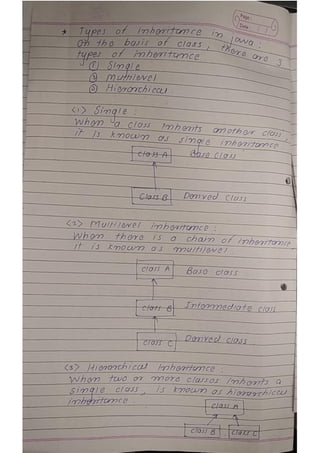 Page
Date
* Types of Inheritance in Java :
On the basis of class, there are 3
types of inheritance
① Single
② Multilevel
③ Hierarchical
<1> Single :
When a class inherits another class,
it is known as single inheritance
Class A Base class
Class B Derived class
<2> Multilevel Inheritance :
When there is a chain of inheritance,
it is known as multilevel.
class A Base class
class B Intermediate class
class C Derived class
<3> Hierarchical Inheritance :
When two or more classes inherits a
single class, is known as hierarchical
inheritance.
class A
class B class C